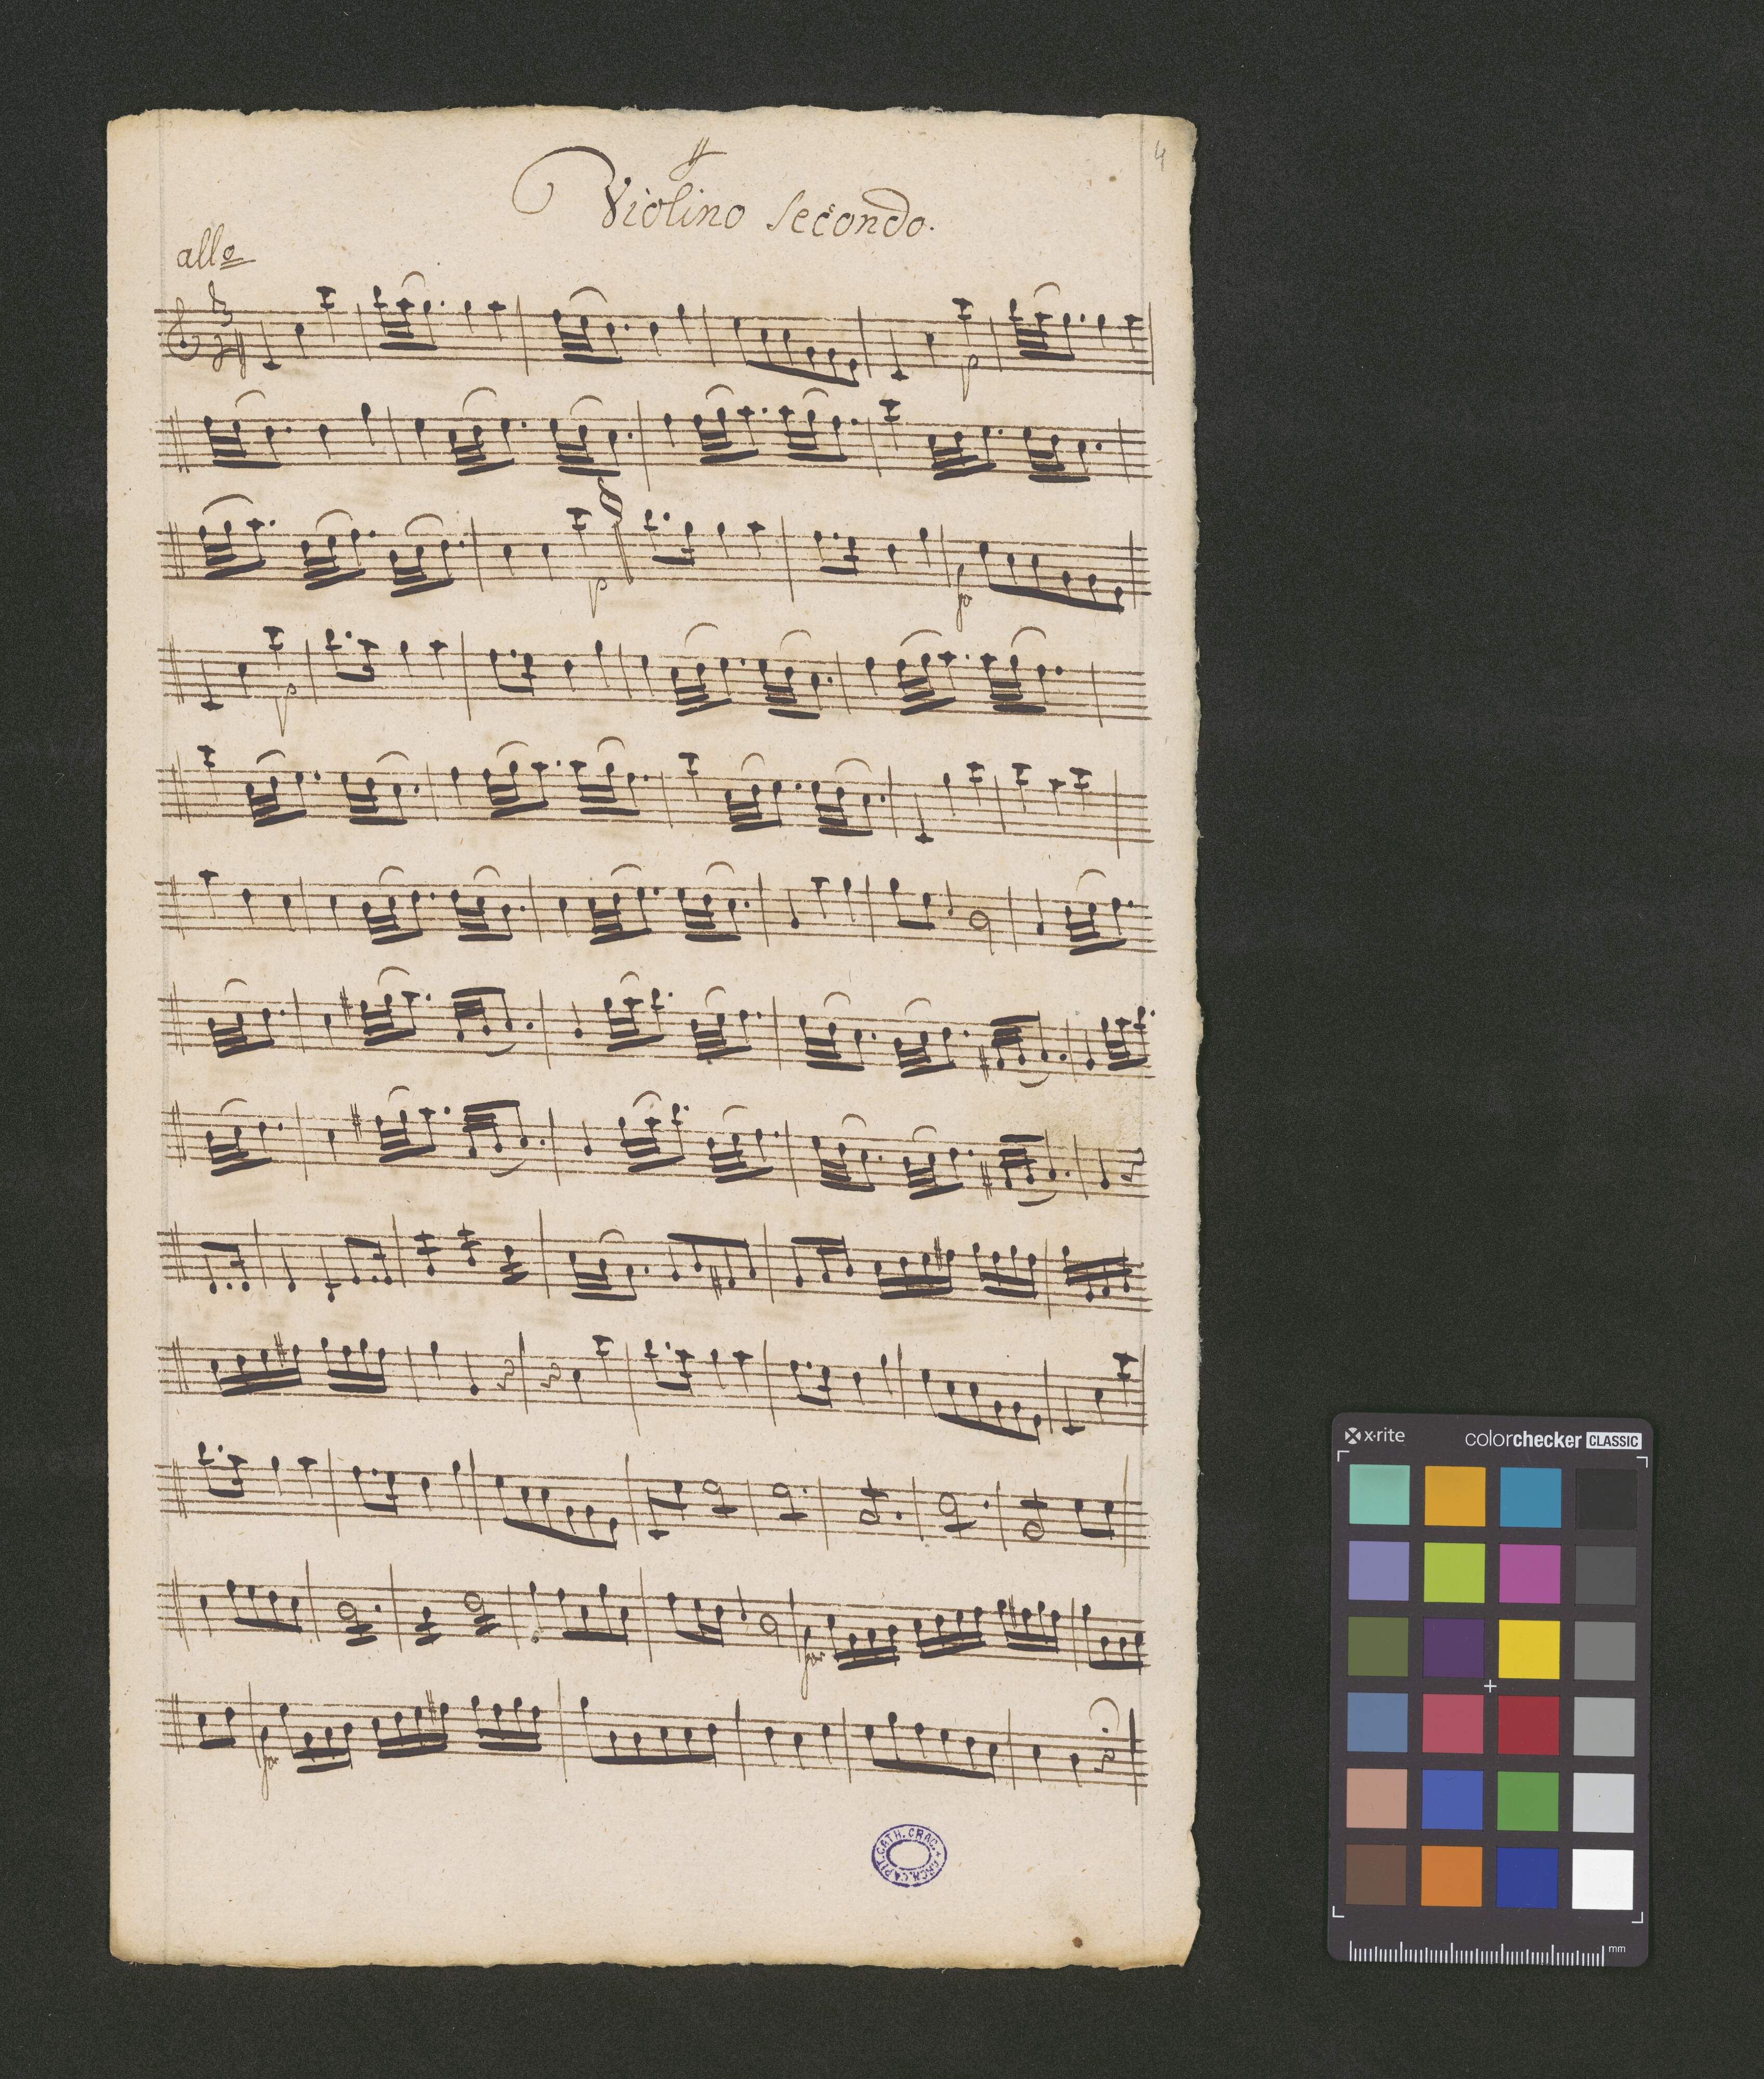 4
Violino Secondo.
allo
p
p
fo
p
for
for
ARCH. CAPIT. CATH. CRAC.
x-rite
colorchecker CLASSIC
mm